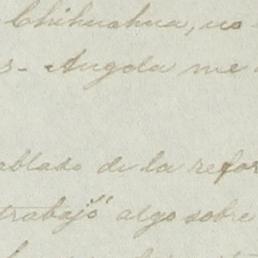 Chihuahua, no
s- Angola me
ablado de la refor
trabajó" algo sobre